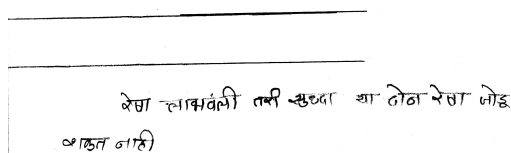 रेषा लाबवली तरी सुध्दा या दोन रेषा जोडू
शकत नाही